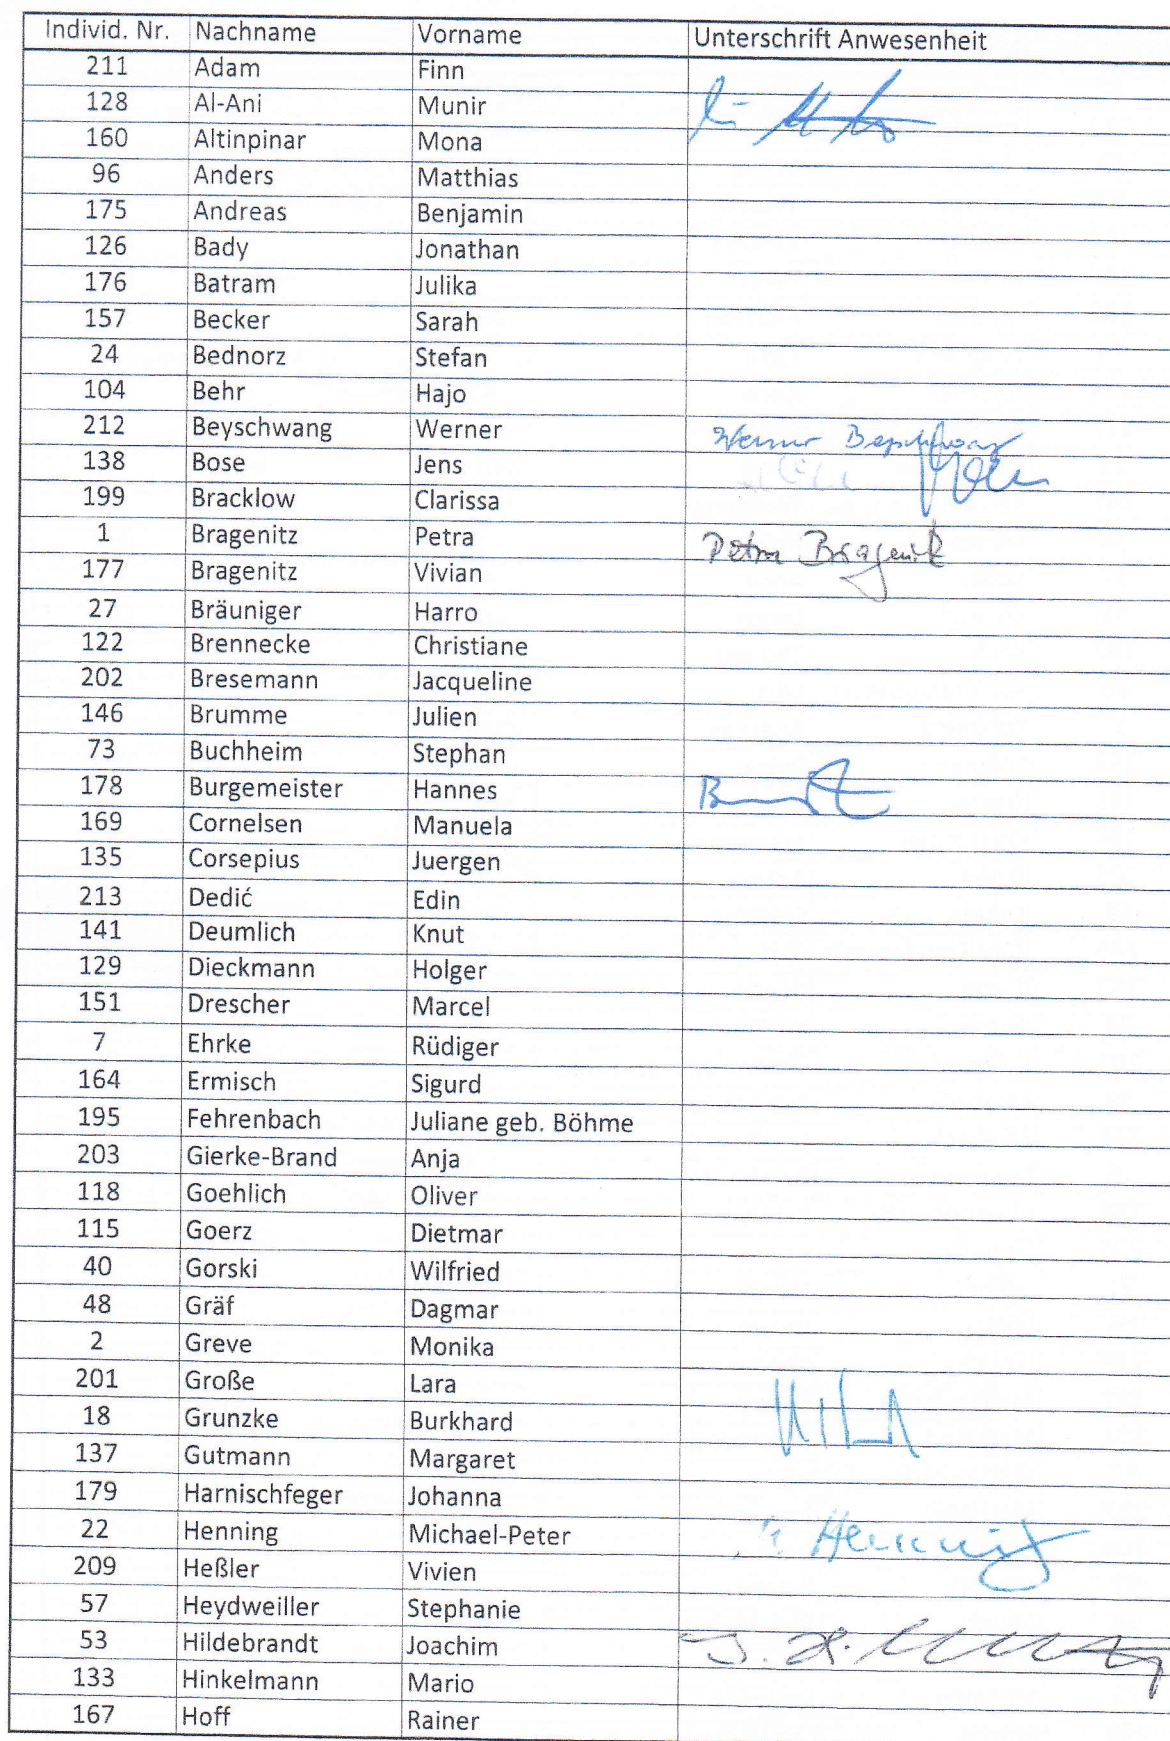 Individ. Nr. Nachname Vorname Unterschrift Anwesenheit
211 Adam Finn
128 Al-Ani Munir
160 Altinpinar Mona
96 Anders Matthias
175 Andreas Benjamin
126 Bady Jonathan
176 Batram Julika
157 Becker Sarah
24 Bednorz Stefan
104 Behr Hajo
212 Beyschwang Werner Werner Beyschwang
138 Bose Jens
199 Bracklow Clarissa
1 Bragenitz Petra Petra Bragenitz
177 Bragenitz Vivian
27 Bräuniger Harro
122 Brennecke Christiane
202 Bresemann Jacqueline
146 Brumme Julien
73 Buchheim Stephan
178 Burgemeister Hannes
169 Cornelsen Manuela
135 Corsepius Juergen
213 Dedić Edin
141 Deumlich Knut
129 Dieckmann Holger
151 Drescher Marcel
7 Ehrke Rüdiger
164 Ermisch Sigurd
195 Fehrenbach Juliane geb. Böhme
203 Gierke-Brand Anja
118 Goehlich Oliver
115 Goerz Dietmar
40 Gorski Wilfried
48 Gräf Dagmar
2 Greve Monika
201 Große Lara
18 Grunzke Burkhard
137 Gutmann Margaret
179 Harnischfeger Johanna
22 Henning Michael-Peter Henning
209 Heßler Vivien
57 Heydweiller Stephanie
53 Hildebrandt Joachim
133 Hinkelmann Mario
167 Hoff Rainer